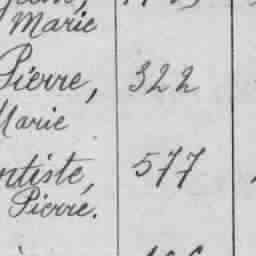 Marie
Pierre, 322
Marie
ntiste, 577
Pierre.